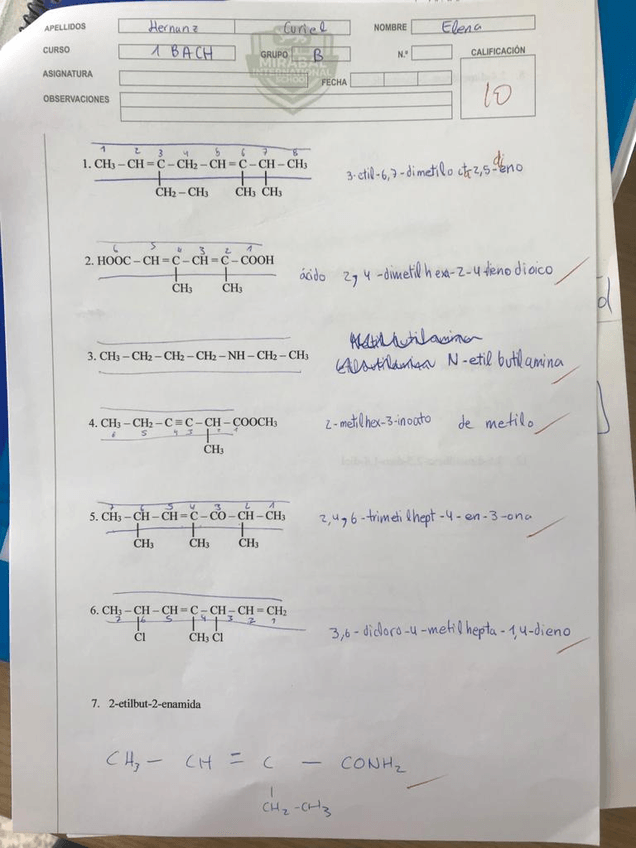 APELLIDOS Hernanz Curiel NOMBRE Elena
CURSO 1 BACH GRUPO B N.º CALIFICACIÓN
ASIGNATURA FECHA 10
OBSERVACIONES
MIRABAL
INTERNATIONAL
SCHOOL
1 2 3 4 5 6 7 8
1. CH₃ – CH = C – CH₂ – CH = C – CH – CH₃
CH₂ – CH₃ CH₃ CH₃
3-etil-6,7-dimetilo 2,5-dieno
6 5 4 3 2 1
2. HOOC – CH = C – CH = C – COOH
CH₃ CH₃
ácido 2,4-dimetilhexa-2-4-dienodioico
3. CH₃ – CH₂ – CH₂ – CH₂ – NH – CH₂ – CH₃
N-etilbutilamina
4. CH₃ – CH₂ – C ≡ C – CH – COOCH₃
6 5 4 3 2 1
CH₃
2-metilhex-3-inoato de metilo
7 6 5 4 3 2 1
5. CH₃ – CH – CH = C – CO – CH – CH₃
CH₃ CH₃ CH₃
2,4,6-trimetilhept-4-en-3-ona
6. CH₃ – CH – CH = C – CH – CH = CH₂
7 6 5 4 3 2 1
Cl CH₃ Cl
3,6-dicloro-4-metilhepta-1,4-dieno
7. 2-etilbut-2-enamida
CH₃ – CH = C – CONH₂
CH₂-CH₃